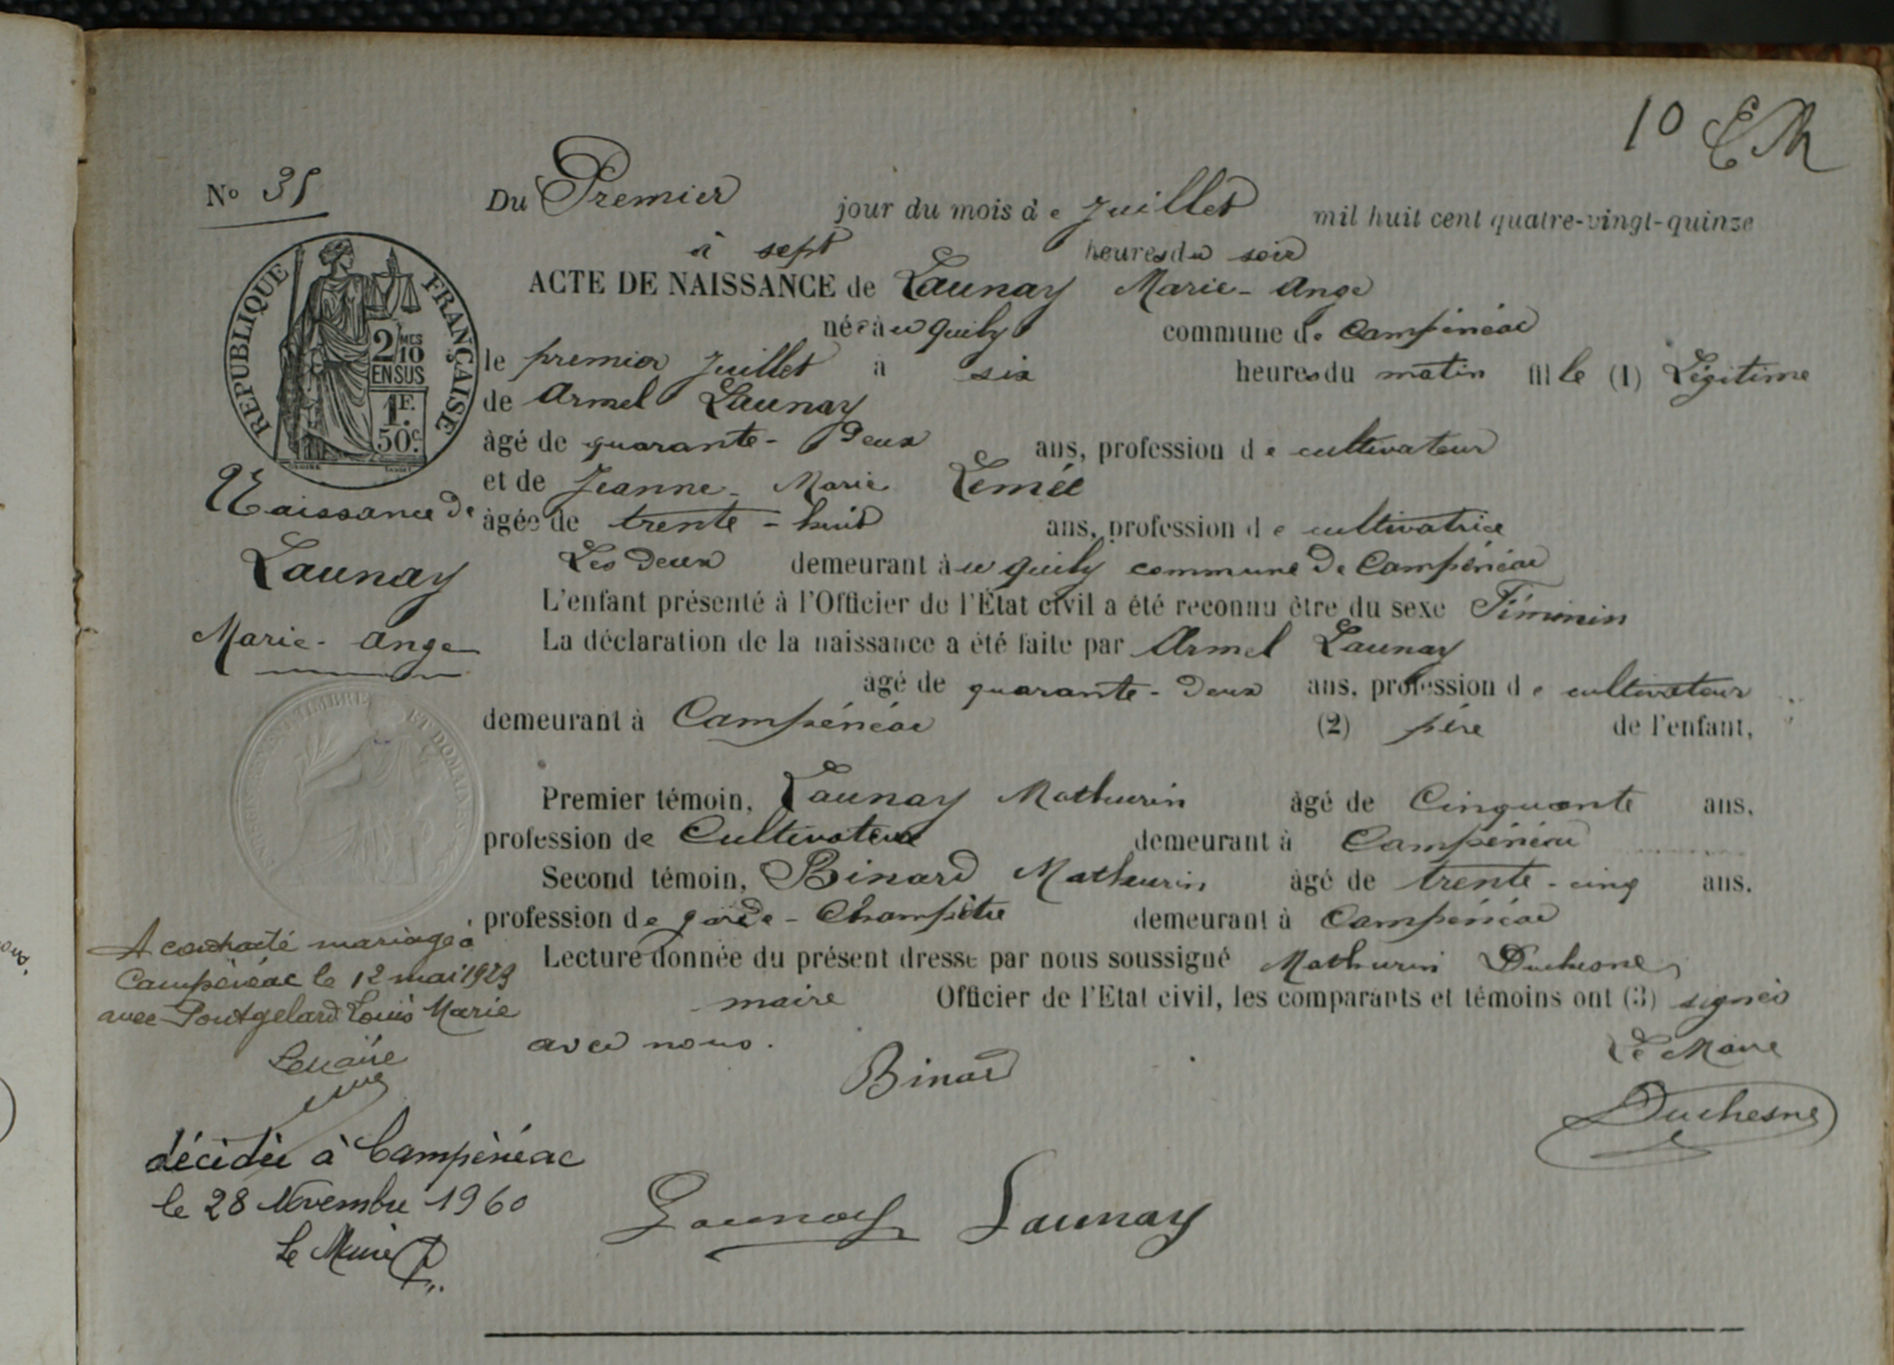 10 EM
No 35
Du Premier jour du mois de Juillet mil huit cent quatre-vingt-quinze
à sept heures du soir
ACTE DE NAISSANCE de Launay Marie-Ange
née à u Quily commune de Campénéac
le premier Juillet à six heures du matin fille (1) Légitime
de Armel Launay
âgé de quarante-Deux ans, profession de cultivateur
et de Jeanne-Marie Lemée
âgée de trente-huit ans, profession de cultivatrice
Les Deux demeurant à u Quily commune De Campénéac
L'enfant présenté à l'Officier de l'État civil a été reconnu être du sexe Féminin
La déclaration de la naissance a été faite par Armel Launay
âgé de quarante-Deux ans, profession de cultivateur
demeurant à Campénéac (2) père de l'enfant,
Premier témoin, Launay Mathurin âgé de Cinquante ans,
profession de Cultivateur demeurant à Campénéac
Second témoin, Binard Mathurin âgé de trente-cinq ans.
profession de garde-Champêtre demeurant à Campénéac
Lecture donnée du présent dressé par nous soussigné Mathurin Duchesne,
maire Officier de l'Etat civil, les comparants et témoins ont (3) signés
avec nous.
Le Maire
Binard
Duchesne
Launay Launay
RÉPUBLIQUE FRANÇAISE
2 MES
10
EN SUS
1F.
50c.
Naissance de
Launay
Marie-Ange
TIMBRE ET DOMAINES
A contracté mariage à
Campénéac le 12 mai 1923
avec Pontgelard Louis Marie
Le maire
décédée à Campénéac
le 28 Novembre 1960
Le Maire